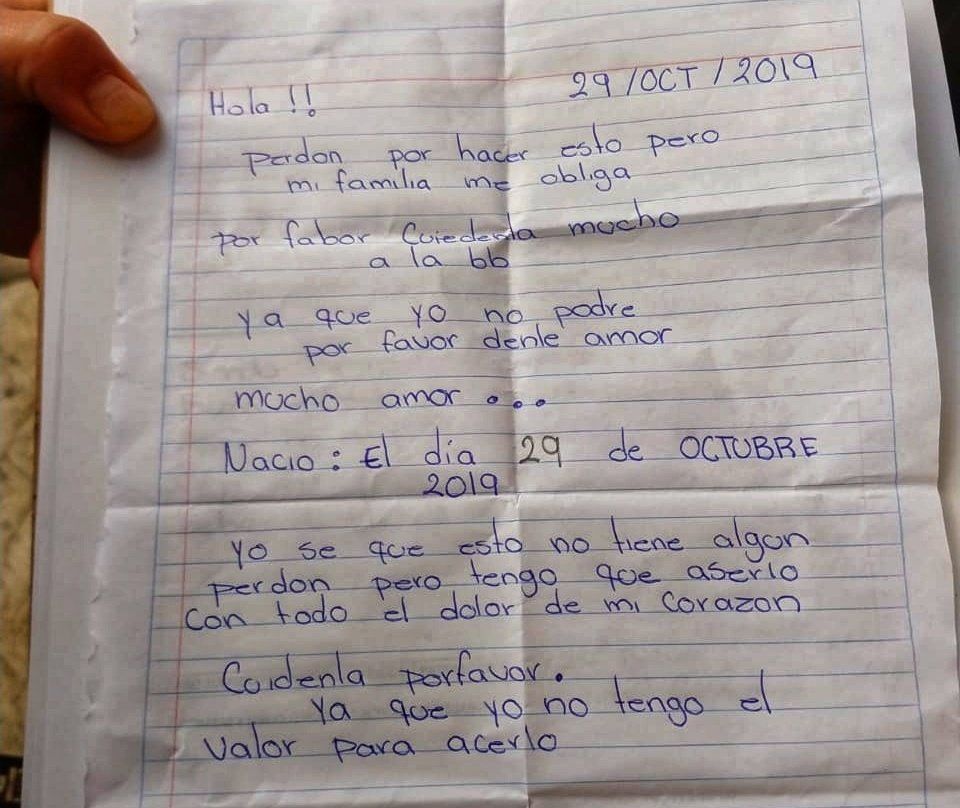 29/OCT/2019
Hola !!
perdon por hacer esto pero
mi familia me obliga
por fabor Cuiedenla mucho
a la bb
ya que yo no podre
por favor denle amor
mucho amor ...
Nacio: El dia 29 de OCTUBRE
2019
yo se que esto no tiene algun
perdon pero tengo que aserlo
con todo el dolor de mi corazon
Cuidenla porfavor.
ya que yo no tengo el
valor para acerlo